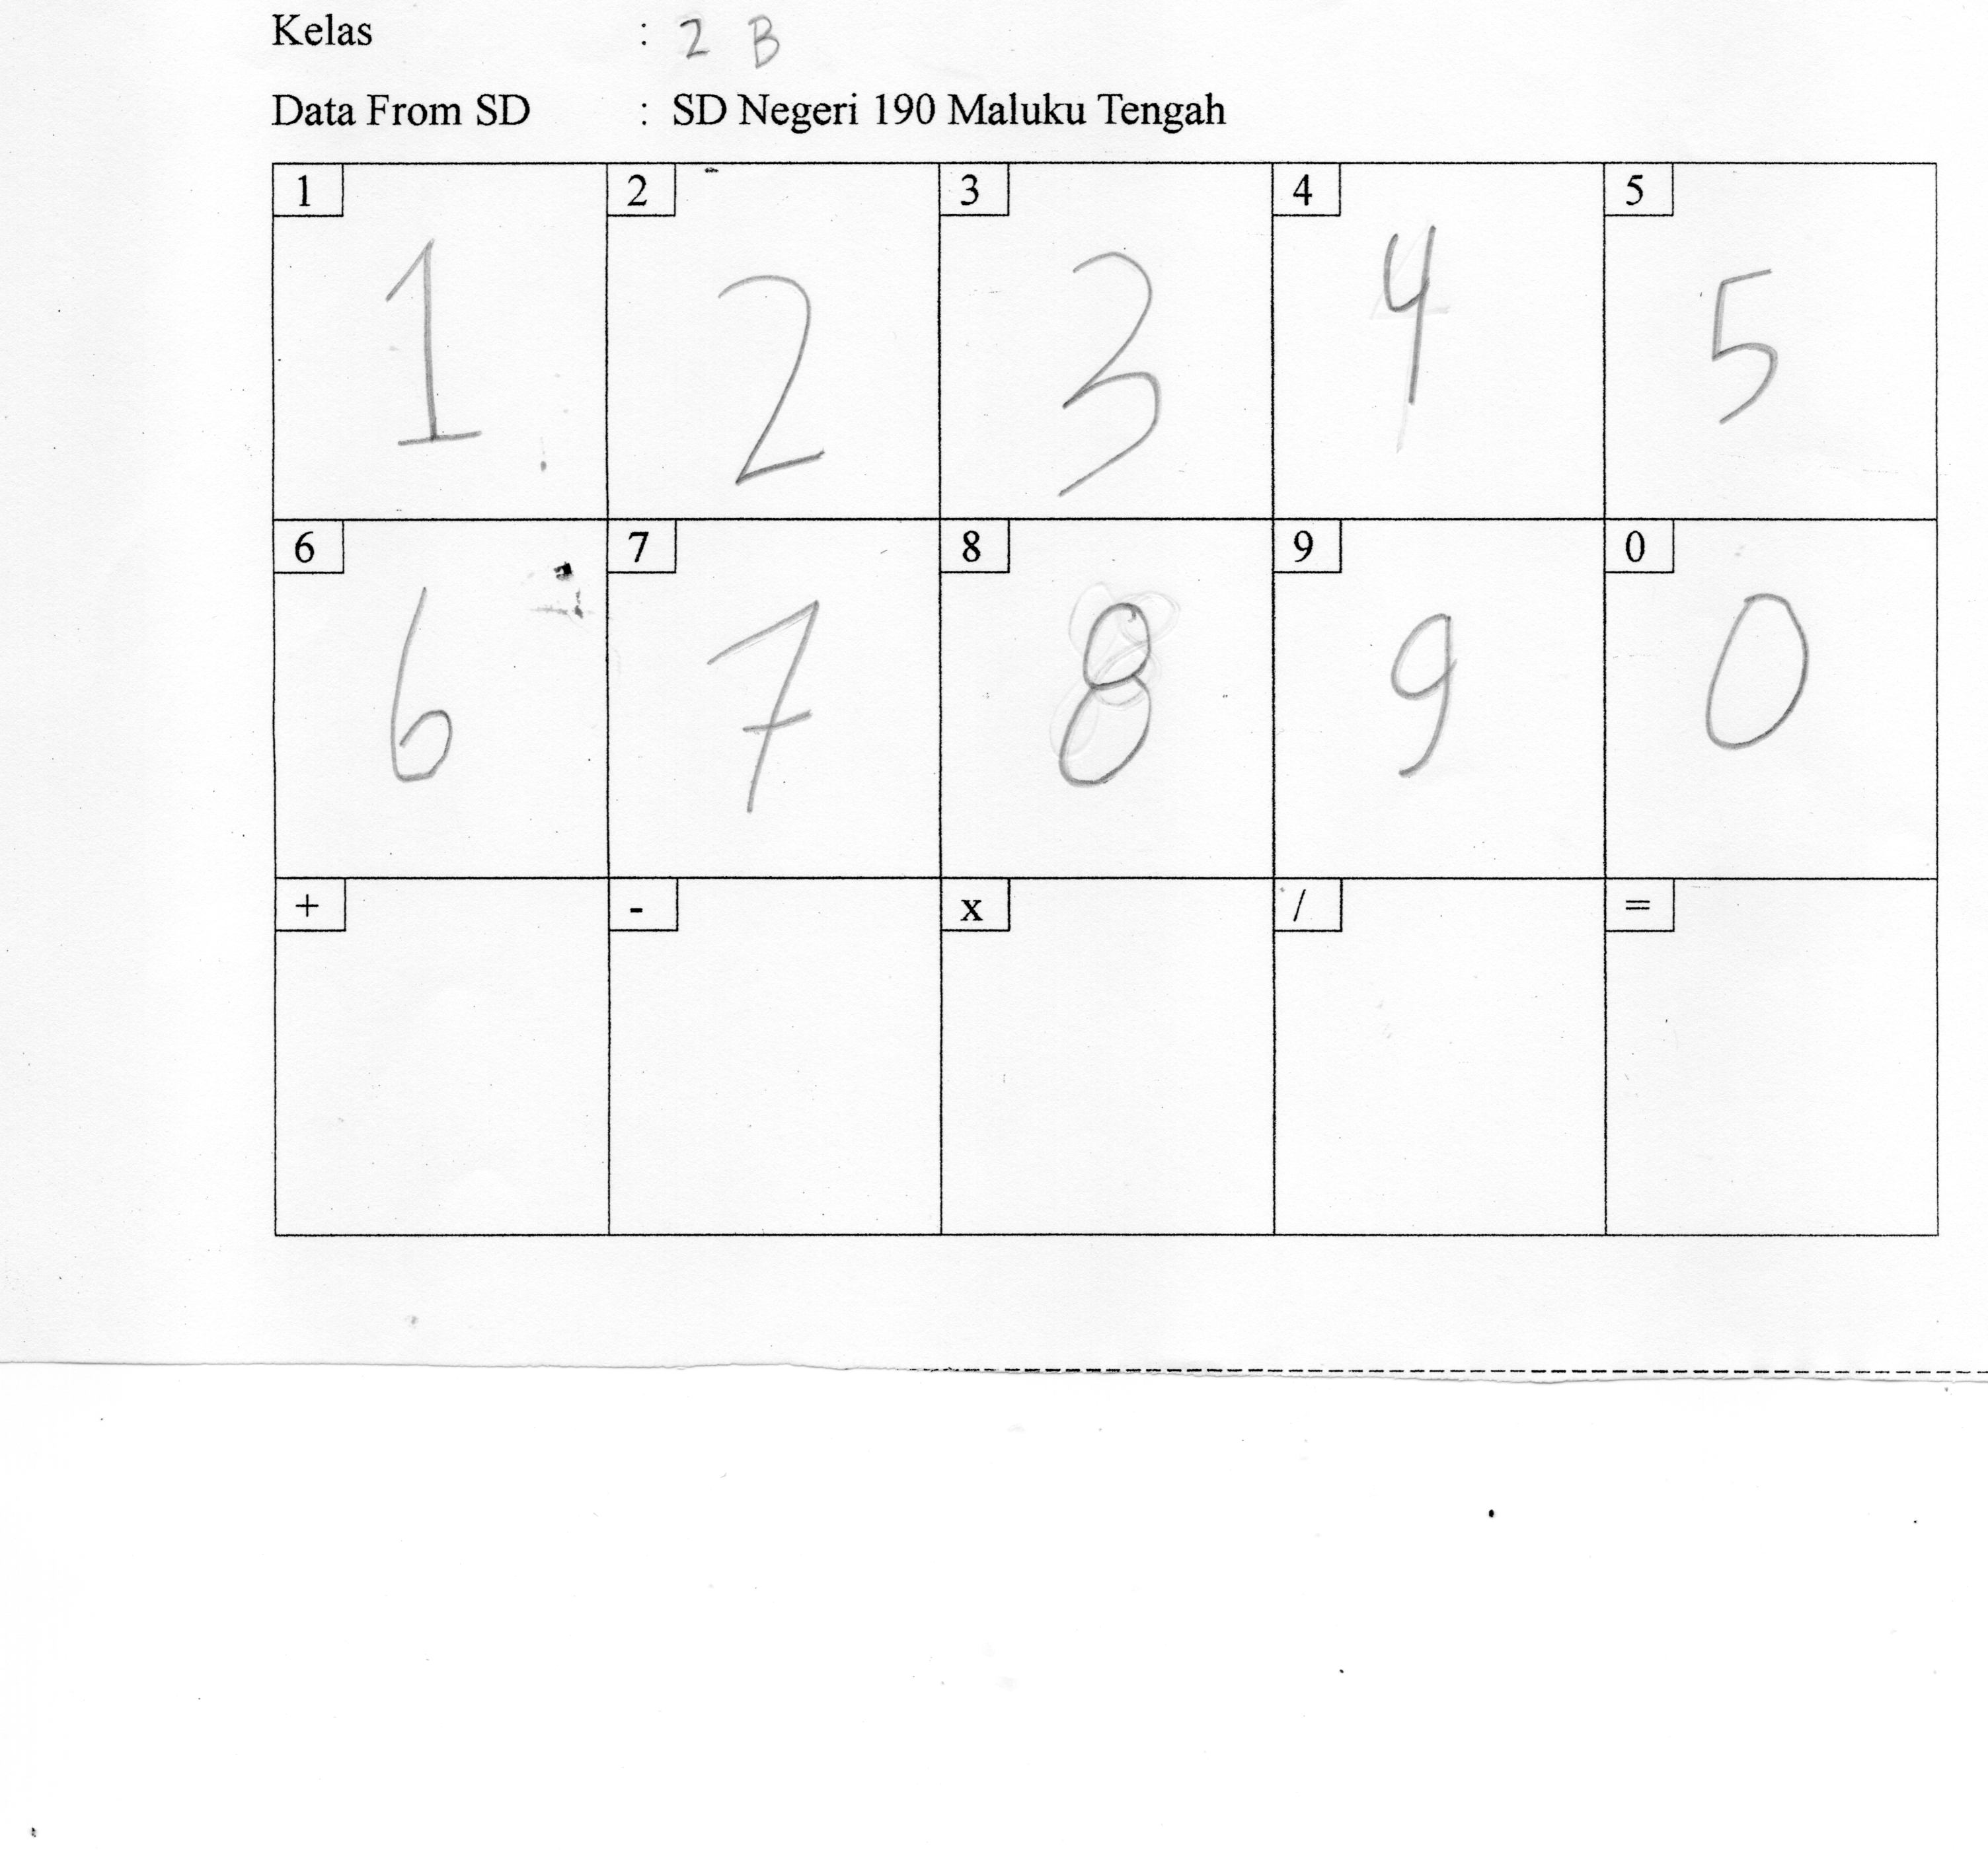 Kelas : 2 B
Data From SD : SD Negeri 190 Maluku Tengah
1 2 3 4 5
1 2 3 4 5
6 7 8 9 0
6 7 8 9 0
+ - x / =